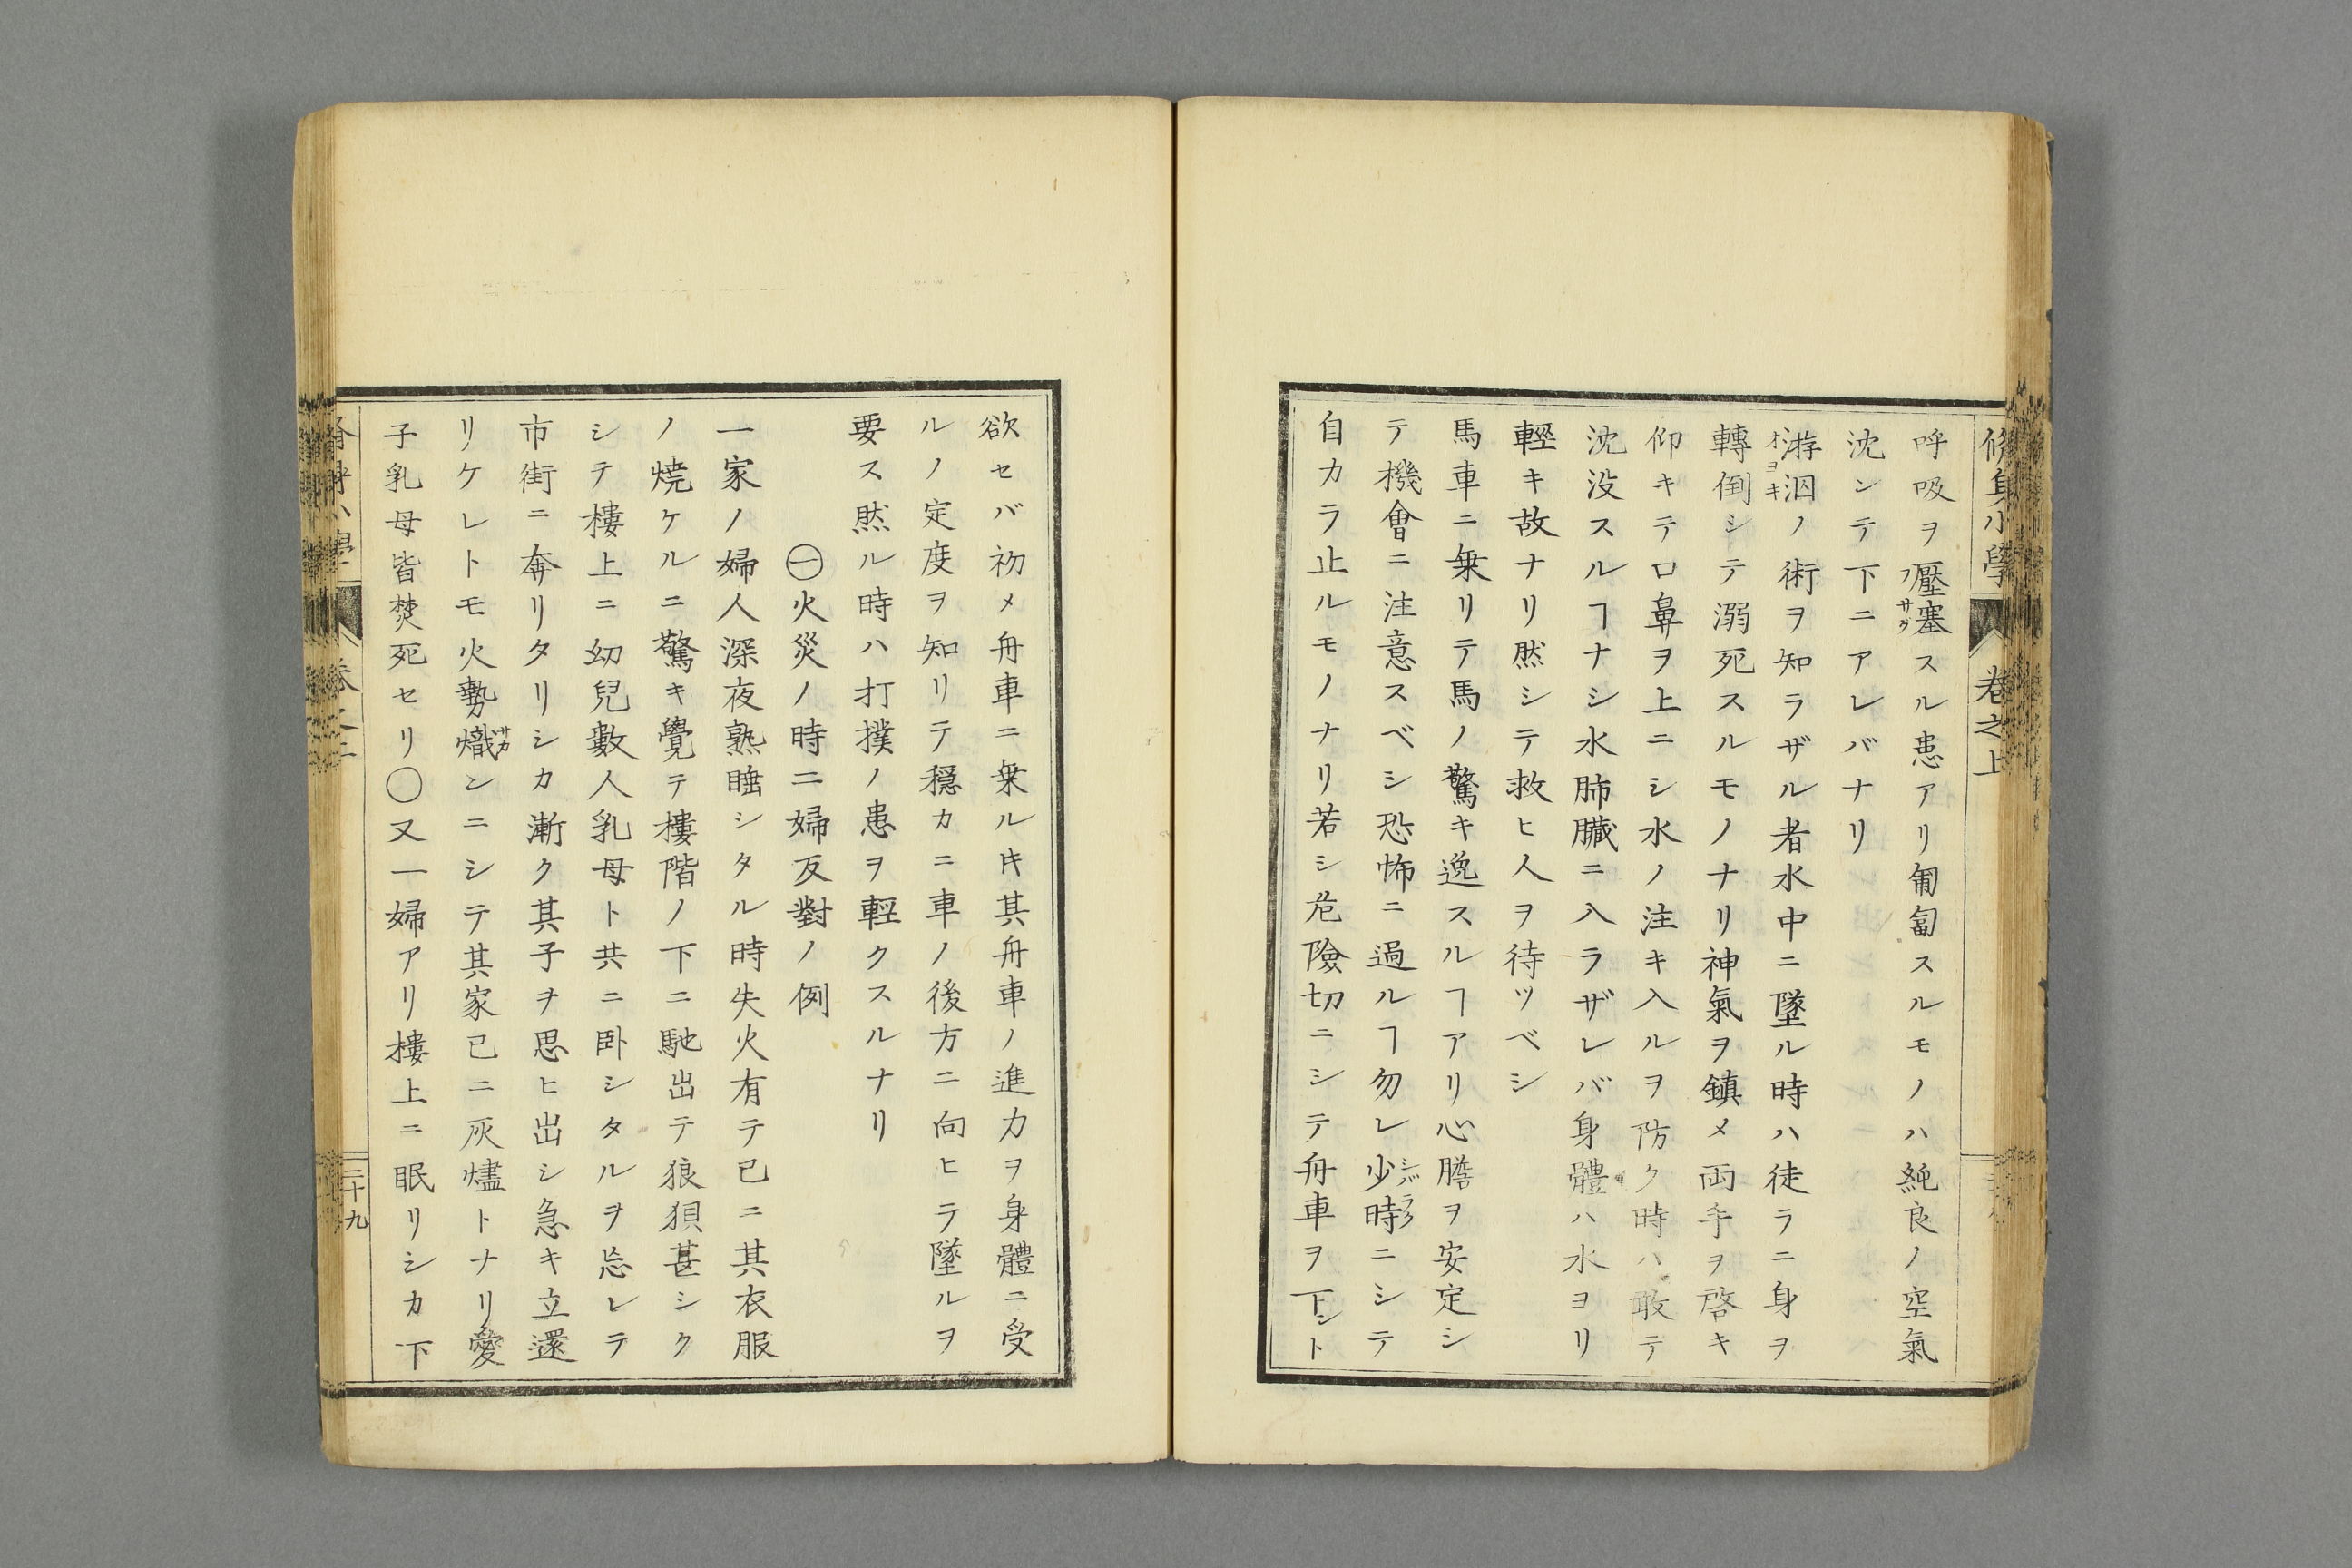 修身小學 卷之上
呼吸ヲ壓塞スル患アリ匍匐スルモノハ純良ノ空氣
フサグ
沈ンテ下ニアレバナリ
游泅ノ術ヲ知ラザル者水中ニ墜ル時ハ徒ラニ身ヲ
オヨキ
轉倒シテ溺死スルモノナリ神氣ヲ鎮メ両手ヲ啓キ
仰キテ口鼻ヲ上ニシ水ノ注キ入ルヲ防ク時ハ敢テ
沈没スルヿナシ水肺臓ニ入ラザレバ身體ハ水ヨリ
輕キ故ナリ然シテ救ヒ人ヲ待ツベシ
馬車ニ乗リテ馬ノ驚キ逸スルヿアリ心膽ヲ安定シ
テ機會ニ注意スベシ恐怖ニ過ルヿ勿レ少時ニシテ
シバラク
自カラ止ルモノナリ若シ危險切ニシテ舟車ヲ下ント
欲セバ初メ舟車ニ乗ル𪜈其舟車ノ進力ヲ身體ニ受
ルノ定度ヲ知リテ穏カニ車ノ後方ニ向ヒテ墜ルヲ
要ス然ル時ハ打撲ノ患ヲ輕クスルナリ
㊀火災ノ時二婦反對ノ例
一家ノ婦人深夜熟睡シタル時失火有テ已ニ其衣服
ノ焼ケルニ驚キ覺テ樓階ノ下ニ馳出テ狼狽甚シク
シテ樓上ニ幼兒數人乳母ト共ニ卧シタルヲ忘レテ
市街ニ奔リタリシカ漸ク其子ヲ思ヒ出シ急キ立還
リケレトモ火勢熾ンニシテ其家已ニ灰燼トナリ愛
サカ
子乳母皆焚死セリ〇又一婦アリ樓上ニ眠リシカ下
二十九